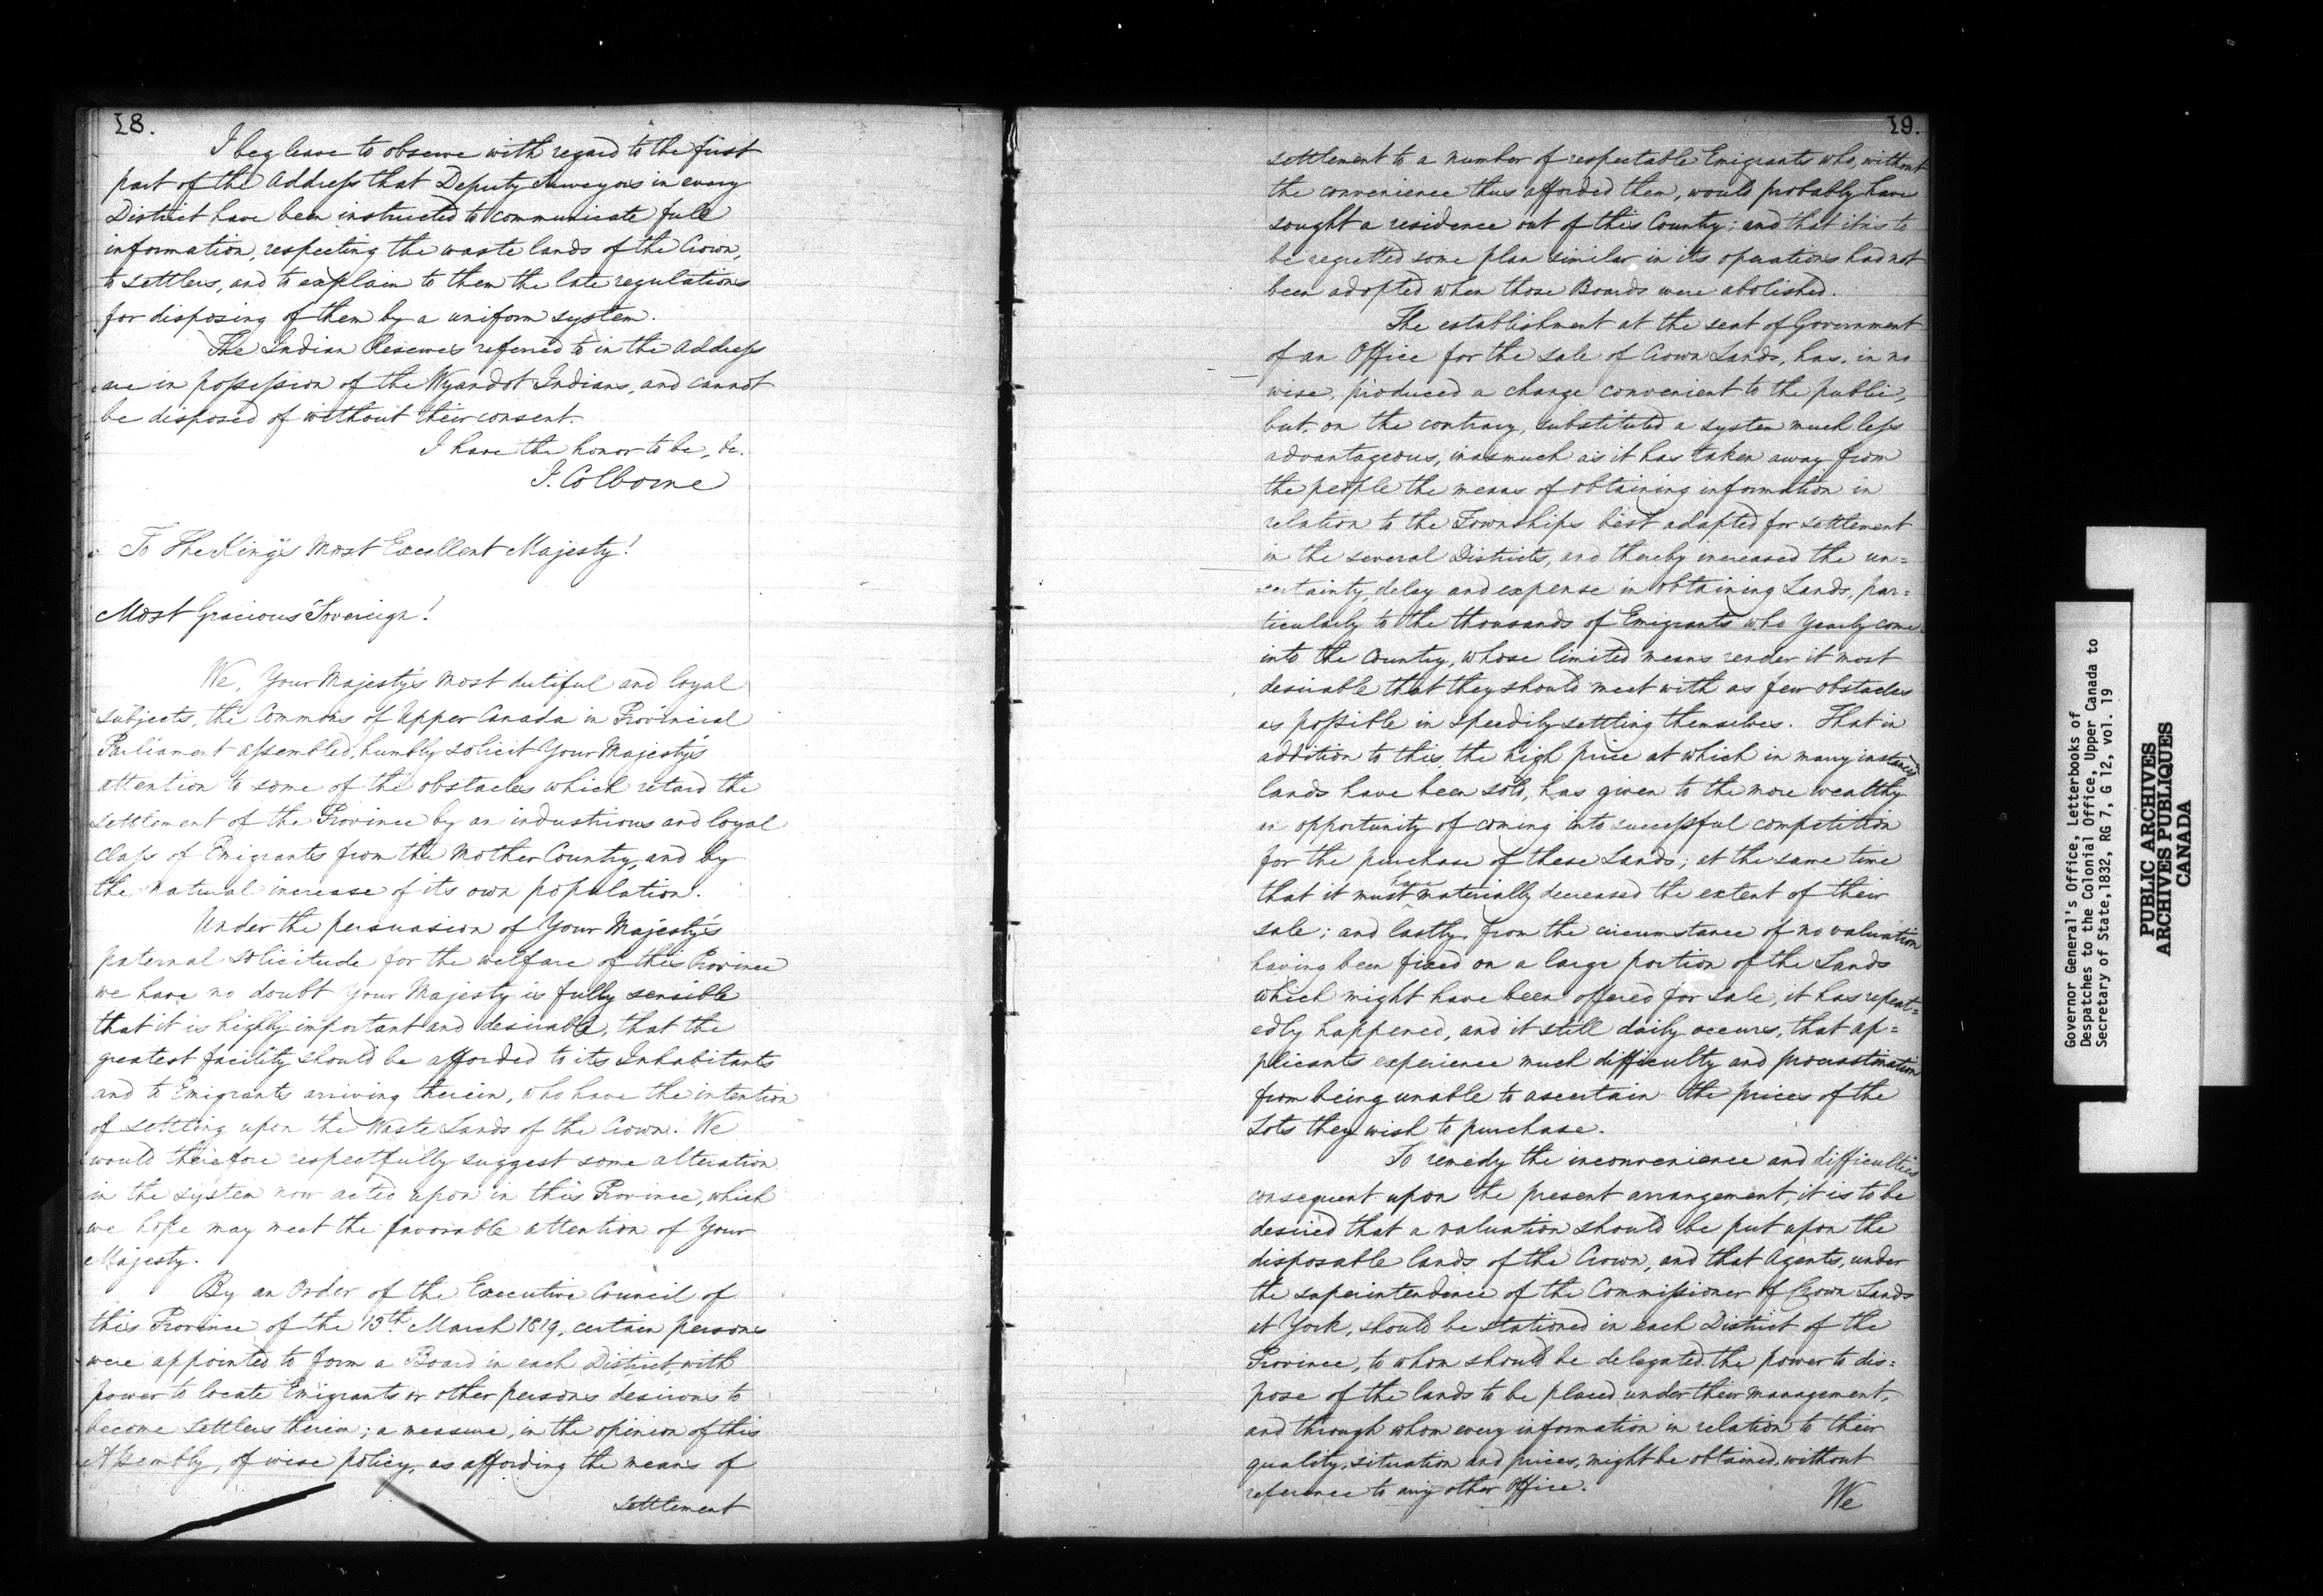 18.
I beg leave to observe with regard to the first
part of the Address that Deputy Surveyors in every
District have been instructed to communicate full
information, respecting the waste lands of the Crown,
to settlers, and to explain to them the late regulations
for disposing of them by a uniform system.
The Indian Reserves referred to in the Address
are in possession of the Wyandot Indians, and cannot
be disposed of without their consent.
I have the honor to be, &c.
J. Colborne
To The King's Most Excellent Majesty!
Most Gracious Sovereign!
We, Your Majesty's most dutiful and loyal
subjects, the Commons of Upper Canada in Provincial
Parliament assembled, humbly solicit Your Majesty's
attention to some of the obstacles which retard the
settlement of the Province by an industrious and loyal
class of Emigrants from the Mother Country, and by
the natural increase of its own population.
Under the persuasion of Your Majesty's
paternal solicitude for the welfare of this Province
we have no doubt Your Majesty is fully sensible
that it is highly important and desirable, that the
greatest facility should be afforded to its Inhabitants
and to Emigrants arriving therein, who have the intention
of settling upon the Waste Lands of the Crown. We
would therefore respectfully suggest some alteration
in the system now acted upon in this Province, which
we hope may meet the favorable attention of Your
Majesty.
By an Order of the Executive Council of
this Province of the 13th March 1819, certain persons
were appointed to form a Board in each District, with
power to locate Emigrants or other persons desirous to
become settlers therein; a measure, in the opinion of this
Assembly, of wise policy, as affording the means of
settlement
19.
settlement to a number of respectable Emigrants who, without
the convenience thus afforded them, would probably have
sought a residence out of this Country; and that it is to
be regretted some plan similar in its operations had not
been adopted when those Boards were abolished.
The establishment at the seat of Government
of an Office for the sale of Crown Lands, has, in no
wise, produced a change convenient to the public,
but, on the contrary, substituted a system much less
advantageous, inasmuch as it has taken away from
the people the means of obtaining information in
relation to the Townships best adapted for settlement
in the several Districts, and thereby increased the un=
=certainty, delay and expense in obtaining Lands, par=
ticularly to the thousands of Emigrants who yearly come
into the Country, whose limited means render it most
desirable that they should meet with as few obstacles
as possible in speedily settling themselves. That in
addition to this, the high price at which in many instances
lands have been sold, has given to the more wealthy
an opportunity of coming into successful competition
for the purchase of these Lands; at the same time
that it must have materially decreased the extent of their
sale; and lastly, from the circumstance of no valuation
having been fixed on a large portion of the Lands
which might have been offered for sale, it has repeat=
edly happened, and it still daily occurs, that ap=
plicants experience much difficulty and procrastination
from being unable to ascertain the prices of the
Lots they wish to purchase.
To remedy the inconvenience and difficulties
consequent upon the present arrangement, it is to be
desired that a valuation should be put upon the
disposable lands of the Crown, and that Agents, under
the superintendence of the Commissioner of Crown Lands
at York, should be stationed in each District of the
Province, to whom should be delegated the power to dis=
pose of the lands to be placed under their management,
and through whom every information in relation to their
quality, situation and prices, might be obtained, without
reference to any other Office.
We
Governor General's Office, Letterbooks of
Despatches to the Colonial Office, Upper Canada to
Secretary of State, 1832, RG 7, G 12, vol. 19
PUBLIC ARCHIVES
ARCHIVES PUBLIQUES
CANADA